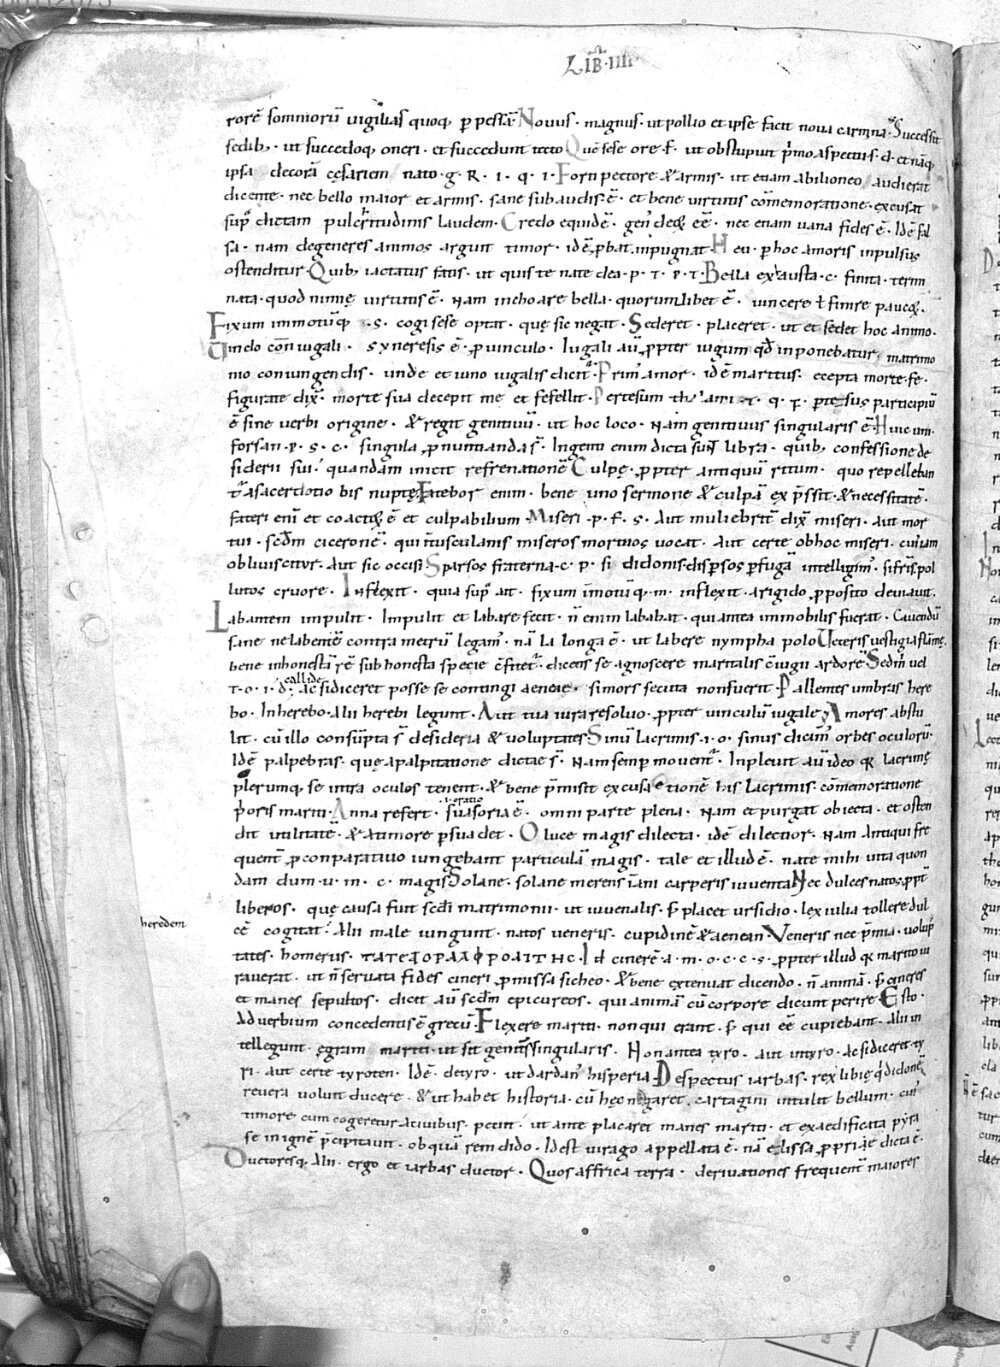 LIB· IIII·
rorē somniorū uigilias quoq; ꝑ pessā· Nouus· magnus· ut pollio et ipse facit noua carmina· Successit
sedib;· ut succedoq; oneri· et succedunt tecto Quē sese ore· f· ut obstupuit p̄mo aspectus· d· et nāq;
ipsa decorā cęsariem nato· g· R· i· q· i· Forti pectore & armis· ut etiam ab ilioneo audierat
dicente· nec bello maior et armis· sane subaudis· ē· et bene uirtutis cōmemoratione· excusat
sup̄ dictam pulcr̄itudinis laudem· Credo equidē· gen̄ deoꝝ eē· nec etiam uana fides ē· Idē fal
sa· nam degeneres animos arguit timor· idē ꝓbat· inpugnat· Heu· ꝑ hoc amoris inpulsus
ostenditur· Quib; iactatus fatis· ut quis te nate dea· p· t· p· t· Bella exhausta· c· finita· termi
nata· quod nimię uirtutis ē· nam inchoare bella· quorumlibet ē· uincere ł finire paucoꝝ·
Fixum immotūq; ·s· cogi sese optat· quę sic negat· Sederet· placeret· ut et sedet hoc animo·
Uinclo cōniugali· syneresis ē· ꝓ uinculo· Iugali aū ꝓpter iugum qđ inponebatur matrimo
nio coniungendis· unde et iuno iugalis dicit̄· Prim̄ amor· idē maritus· ecepta morte· fe·
figurate dix̄· morte sua decepit me et fefellit· Pertesum thalami· t· q· f· pertęsus participiū
ē sine uerbi origine· & regit genitiuū· ut hoc loco· nam genitiuus singularis ē· Huic uni·
forsan· p· s· c· singula ꝓnuntianda s̄· Ingenti enim dicta sunt libra· quib; confessione de
siderii sui· quandam inicit refrenationē Culpę· ꝓpter antiquū ritum· quo repelleban
t̄ a sacerdotio bis nuptę· Fatebor enim· bene uno sermone & culpā exp̄ssit· & necessitatē·
fateri eni et coactoꝝ ē et culpabilium· Miseri· p· f· s· Aut muliebrit̄ dix̄ miseri· Aut mor
tui· scdm̄ ciceronē· qui in tusculanis miseros mortuos uocat· Aut certe ob hoc miseri· cui iam
obliuiscitur· Aut sic occisi Sparsos fraterna· c· p· si didonis· dispersos ꝑ fugā intelligim̄· si fr̄is pol
lutos cruore· Inflexit· quia sup̄ ait· fixum imotūq;· m· inflexit· a rigido ꝓposito deuiauit·
Labantem impulit· Impulit et labare fecit· n̄ enim lababat· qui antea immobilis fuerat· Cauendū
sane ne labentē contra metrū legam̄· nā la longa ē· ut labere nympha polo Ueteris uestigia flāmę·
bene inhonestā rē sub honesta specie cfitet̄· dicens se agnoscere maritalis ciugii ardorē Sedm̄ uel
callide
t· o· i· d· ac si diceret posse se contingi aeneae· si mors secuta non fuerit· Pallentes umbras here
bo· In herebo· Alii herebi legunt· Aut tua iura resoluo· ꝓpter uinculū iugale· Amores abstu
lit· cū illo consūpta s̄ desideria & uoluptates Sinū lacrimis· i· o· sinus dicim̄ orbes oculorū·
Idē palpebras· quę a palpitatione dictae s̄· nam semp̄ mouent̄· Inpleuit aū ideo qꝛ lacrimę
plerumq; se intra oculos tenent· & bene p̄misit excusationē his lacrimis· cōmemoratione
p̄oris mariti· Anna refert· suasoria ē· omni parte plena· nam et purgat obiecta· et osten
oratio
dit utilitatē· & a timore ꝑsuadet· O luce magis dilecta· idē dilectior· nam antiqui fre
quent̄ ꝓ comparatiuo iungebant particulā magis· tale et illud ē· nate mihi uita quon
dam dum· u· m· c· magis Solane· solane merens iani carperis iuuenta Nec dulces natos· ꝓpt̄
liberos· quę causa fuit scdi matrimonii· ut iuuenalis· s; placet ursidio· lex iulia tollere dul
heredem
cē cogitat· Alii male iungunt· natos ueneris· cupidinē & aenean· Veneris nec p̄mia· uolup
tates· homerus· Id cinerē· a· m· o· c· c· s· ꝓpter illud qꝛ marito iu
rauerat· ut n̄ seruata fides cineri ꝓmissa sicheo· & bene extenuat dicendo· n̄ animā· s; cineres
et manes sepultos· dicit aū scdm̄ epicureos· qui animā cū corpore dicunt perire· Esto·
Aduerbium concedentis ē grecū· Flexere mariti· non qui erant· s; qui eē cupiebant· Alii in
tellegunt· ęgram mariti· ut sit genit̄ singularis· Non antea tyro· aut in tyro· ac si diceret· ty
ri· aut certe tyroten· Idē· de tyro· ut dardan̄ hisperia· Despectus iarbas· rex libię q̄ didonē
reuera uoluit ducere· & ut habet historia· cū hęc negaret· cartagini intulit bellum· cui
timore cum cogeretur a ciuibus· petiit· ut ante placaret manes mariti· et exaedificata pyra
se in ignē p̄cipitauit· ob quā rem dido· id est uirago appellata ē· nā elissa ꝓprię dicta ē·
Ductoresq; Alii· ergo et iarbas ductor· Quos affrica terra· deriuationes frequent̄ maiores